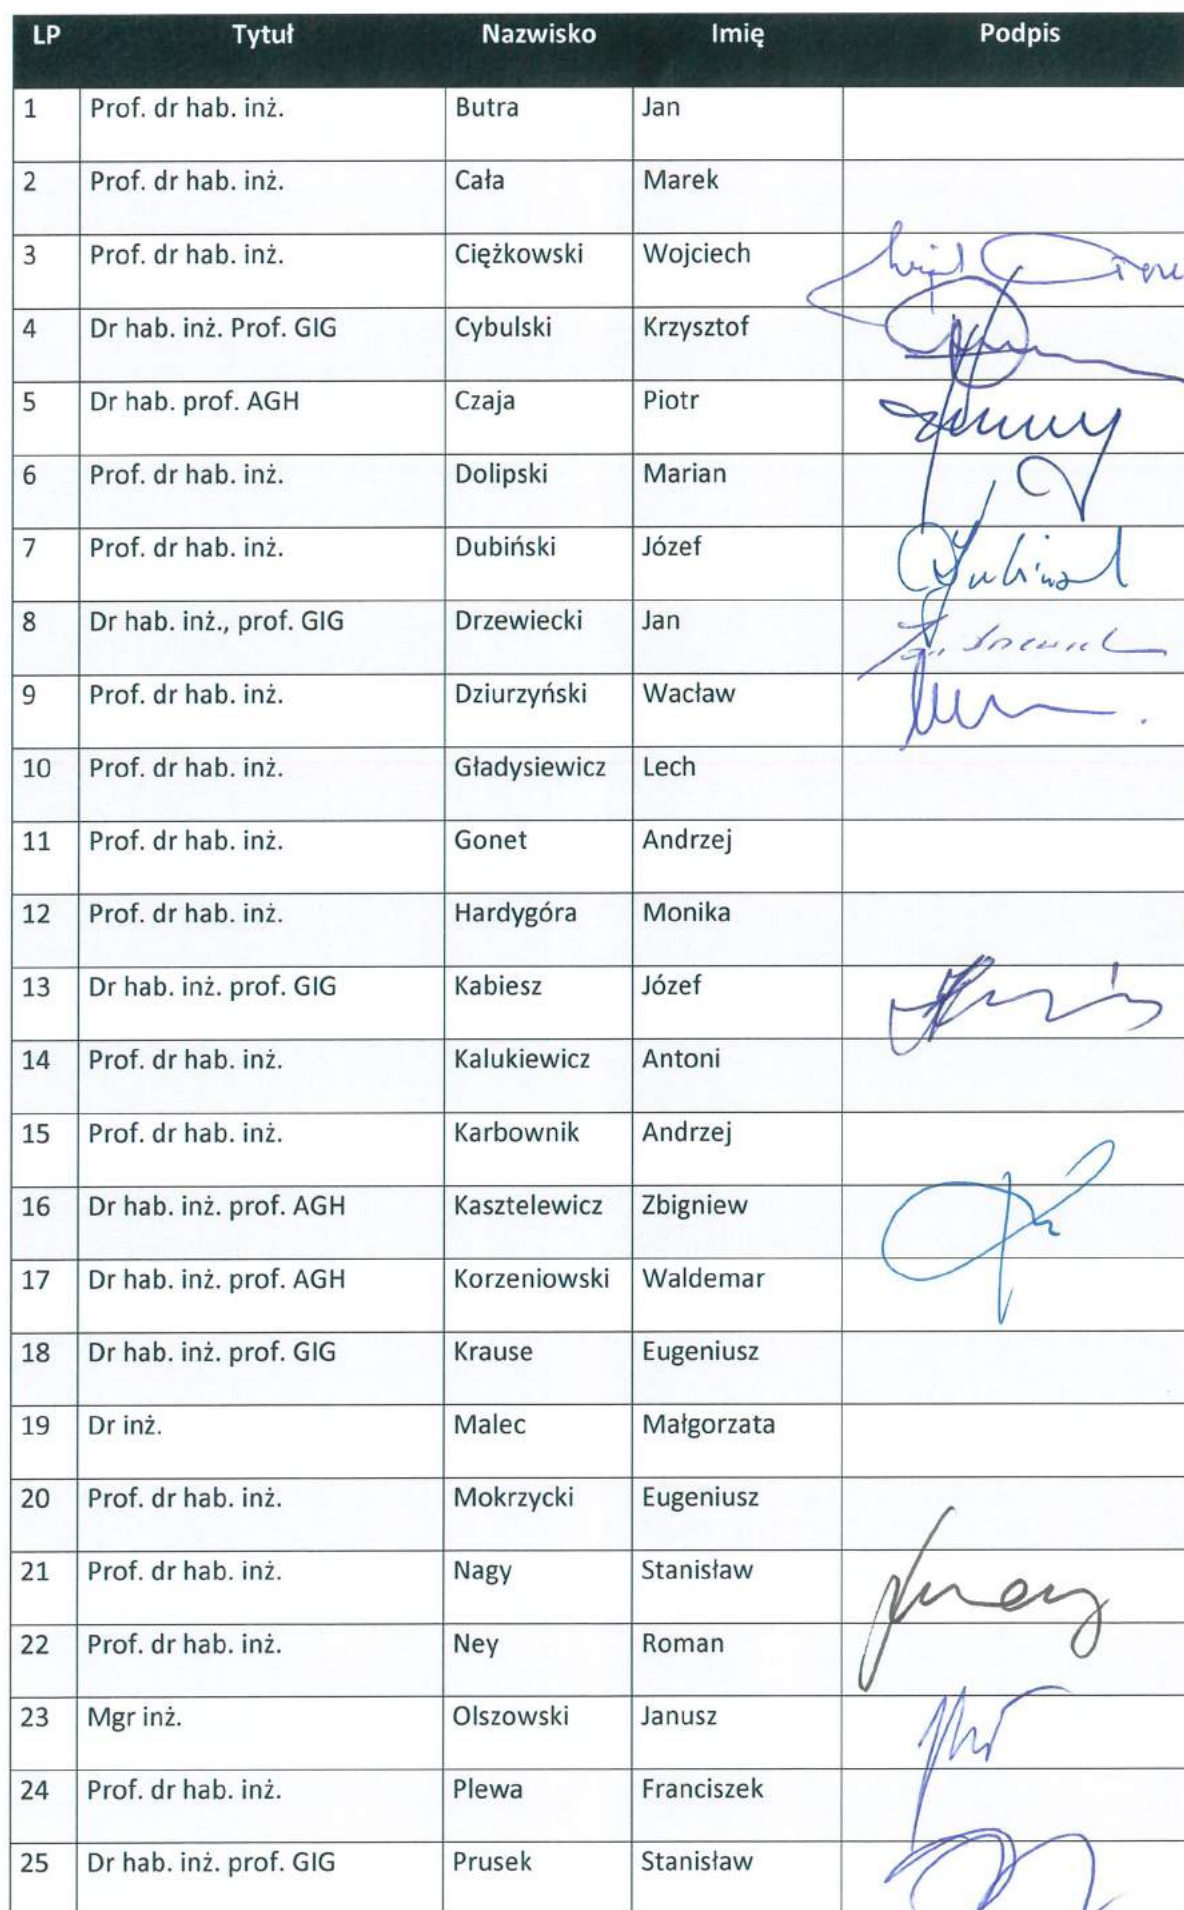 LP Tytuł Nazwisko Imię Podpis
1 Prof. dr hab. inż. Butra Jan
2 Prof. dr hab. inż. Cała Marek
3 Prof. dr hab. inż. Ciężkowski Wojciech
4 Dr hab. inż. Prof. GIG Cybulski Krzysztof
5 Dr hab. prof. AGH Czaja Piotr
6 Prof. dr hab. inż. Dolipski Marian
7 Prof. dr hab. inż. Dubiński Józef
8 Dr hab. inż., prof. GIG Drzewiecki Jan
9 Prof. dr hab. inż. Dziurzyński Wacław
10 Prof. dr hab. inż. Gładysiewicz Lech
11 Prof. dr hab. inż. Gonet Andrzej
12 Prof. dr hab. inż. Hardygóra Monika
13 Dr hab. inż. prof. GIG Kabiesz Józef
14 Prof. dr hab. inż. Kalukiewicz Antoni
15 Prof. dr hab. inż. Karbownik Andrzej
16 Dr hab. inż. prof. AGH Kasztelewicz Zbigniew
17 Dr hab. inż. prof. AGH Korzeniowski Waldemar
18 Dr hab. inż. prof. GIG Krause Eugeniusz
19 Dr inż. Malec Małgorzata
20 Prof. dr hab. inż. Mokrzycki Eugeniusz
21 Prof. dr hab. inż. Nagy Stanisław
22 Prof. dr hab. inż. Ney Roman
23 Mgr inż. Olszowski Janusz
24 Prof. dr hab. inż. Plewa Franciszek
25 Dr hab. inż. prof. GIG Prusek Stanisław